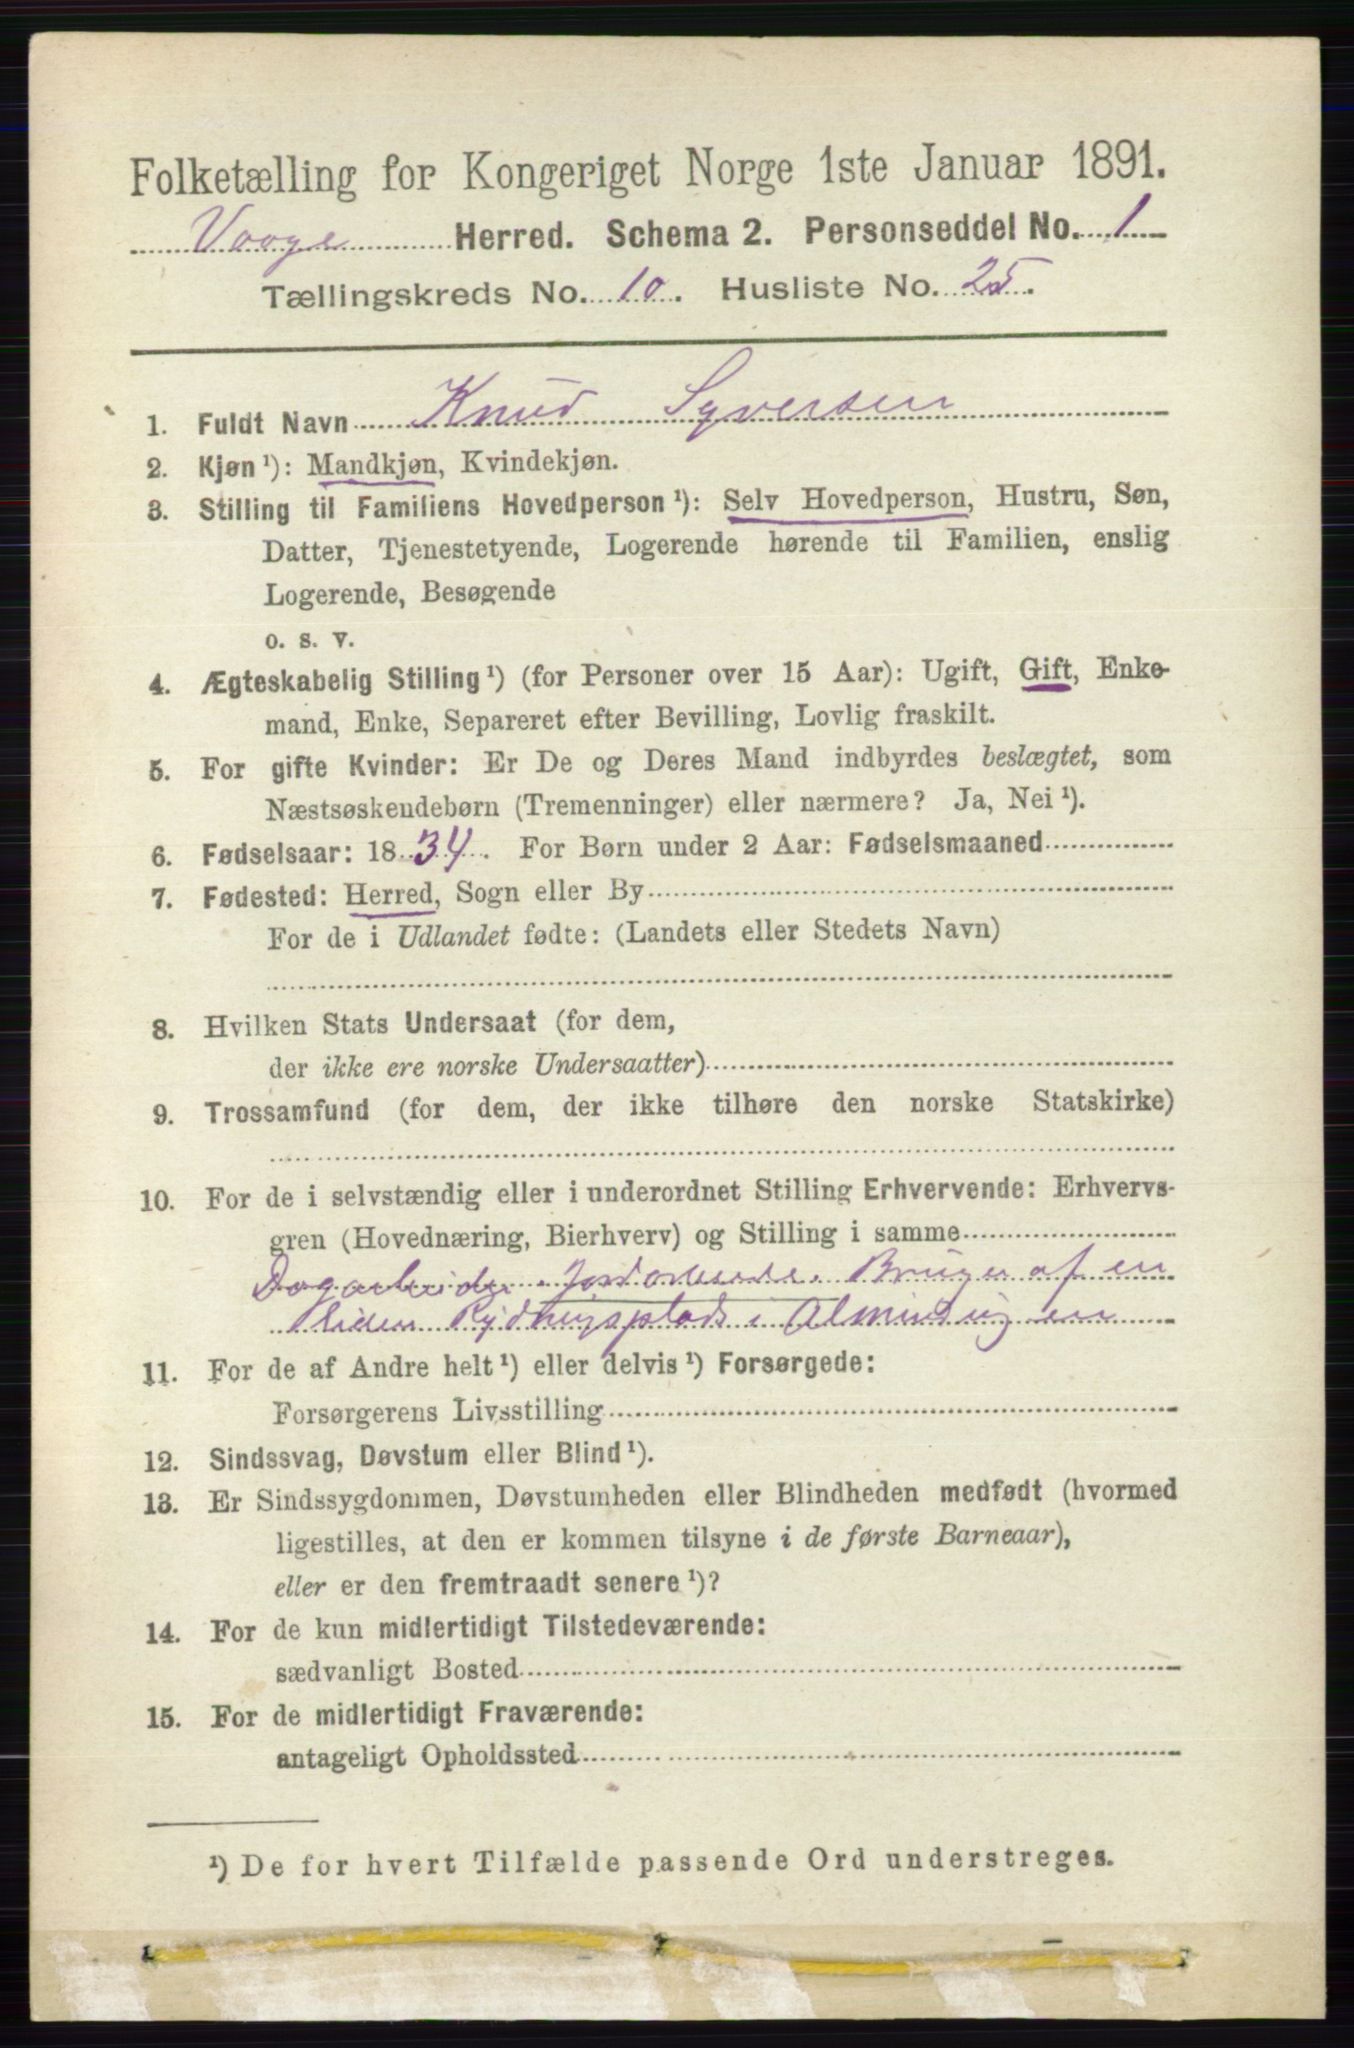 Folketælling for Kongeriget Norge 1ste Januar 1891.
Vaage Herred. Schema 2. Personseddel No. 1
Tællingskreds No. 10. Husliste No. 25.
1. Fuldt Navn Knud Syversen
2. Kjøn¹): Mandkjøn, Kvindekjøn.
3. Stilling til Familiens Hovedperson¹): Selv Hovedperson, Hustru, Søn,
Datter, Tjenestetyende, Logerende hørende til Familien, enslig
Logerende, Besøgende
o. s. v.
4. Ægteskabelig Stilling¹) (for Personer over 15 Aar): Ugift, Gift, Enke-
mand, Enke, Separeret efter Bevilling, Lovlig fraskilt.
5. For gifte Kvinder: Er De og Deres Mand indbyrdes beslægtet, som
Næstsøskendebørn (Tremenninger) eller nærmere? Ja, Nei¹).
6. Fødselsaar: 1834. For Børn under 2 Aar: Fødselsmaaned
7. Fødested: Herred, Sogn eller By
For de i Udlandet fødte: (Landets eller Stedets Navn)
8. Hvilken Stats Undersaat (for dem,
der ikke ere norske Undersaatter)
9. Trossamfund (for dem, der ikke tilhøre den norske Statskirke)
10. For de i selvstændig eller i underordnet Stilling Erhvervende: Erhvervs-
gren (Hovednæring, Bierhverv) og Stilling i samme
Dagarbeider. Bruger af en
liden Rydningsplads i Almindingen
11. For de af Andre helt¹) eller delvis¹) Forsørgede:
Forsørgerens Livsstilling
12. Sindssvag, Døvstum eller Blind¹).
13. Er Sindssygdommen, Døvstumheden eller Blindheden medfødt (hvormed
ligestilles, at den er kommen tilsyne i de første Barneaar),
eller er den fremtraadt senere¹)?
14. For de kun midlertidigt Tilstedeværende:
sædvanligt Bosted
15. For de midlertidigt Fraværende:
antageligt Opholdssted
¹) De for hvert Tilfælde passende Ord understreges.